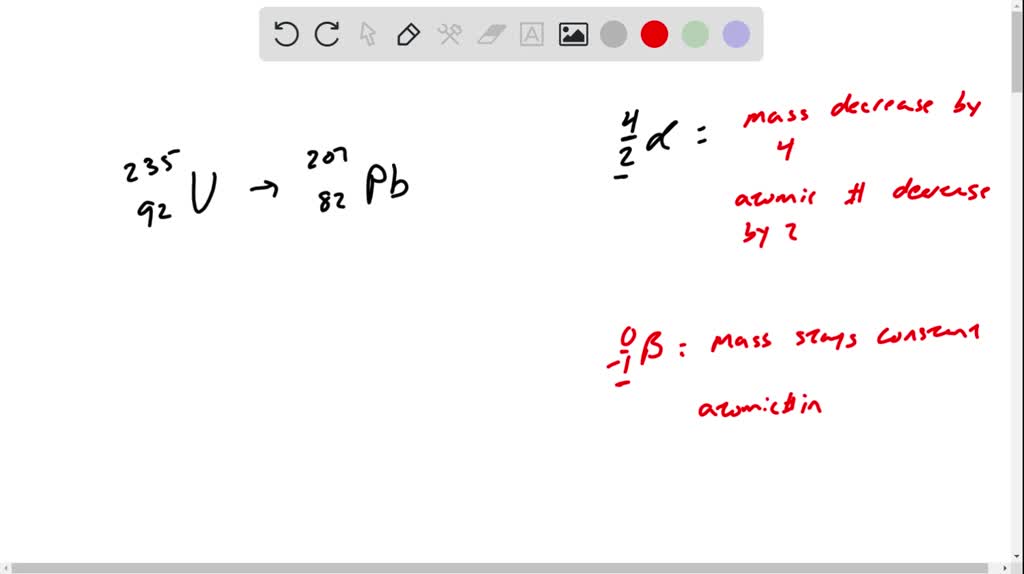 235
92 U → 207
82 Pb
4
2 α = mass decrease by
4
atomic # decrease
by 2
0
-1 β : mass stays constant
atomic # in